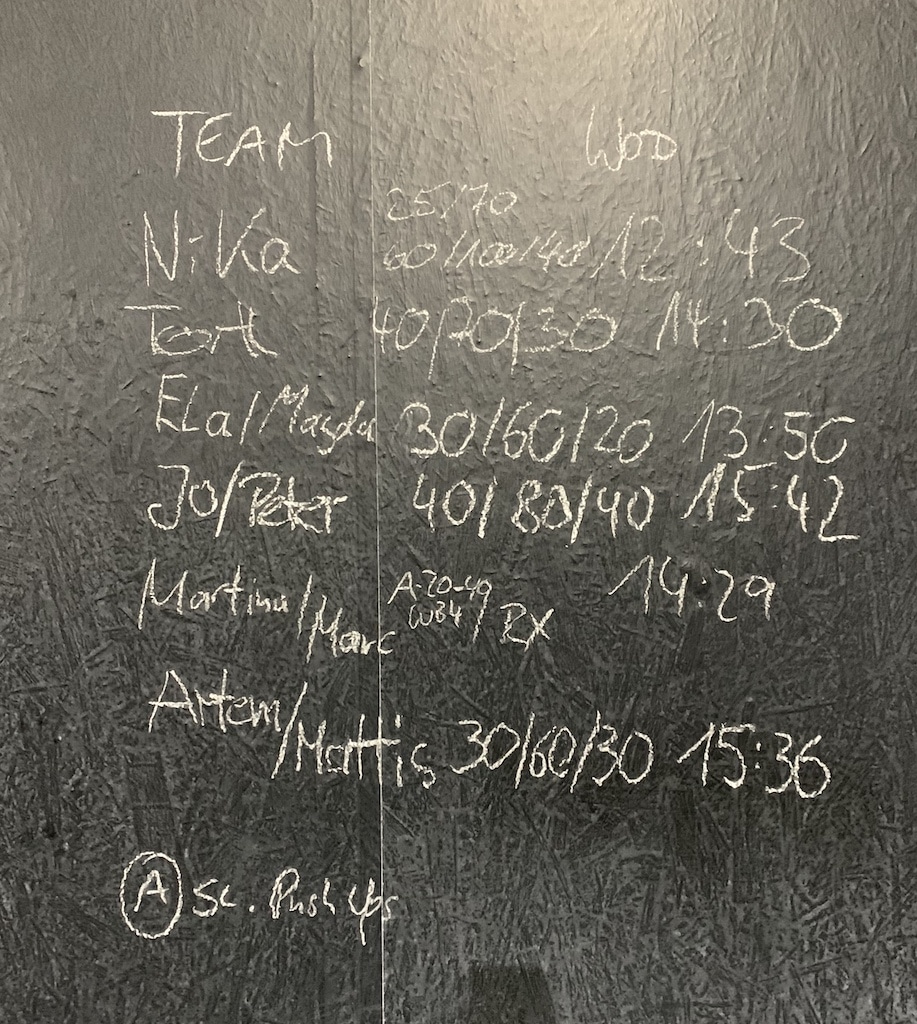 TEAM WOD
25/70
NiKa 60/100/40 12:43
40/70/30 14:30
Ela/Magda 30/60/20 13:50
Jo/Peter 40/80/40 15:42
Martina/Marc A-20-40 / RX 14:29
Artem/Mattis 30/60/30 15:36
A Sc. Push Ups